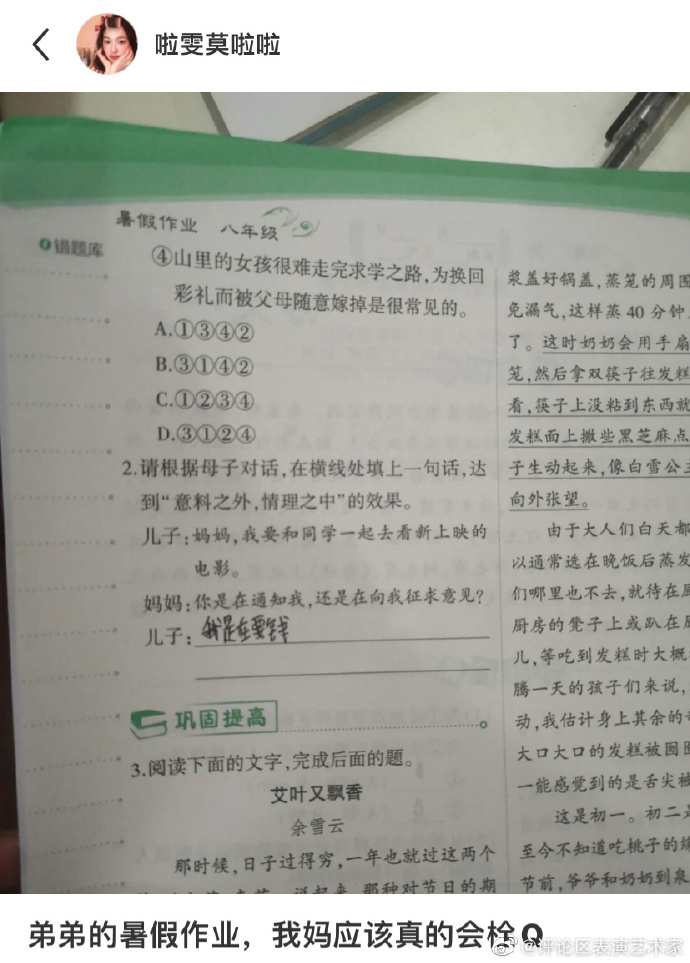 啦雯莫啦啦
暑假作业 八年级
错题库
④山里的女孩很难走完求学之路,为换回
彩礼而被父母随意嫁掉是很常见的。
A.①③④②
B.③①④②
C.①②③④
D.③①②④
2.请根据母子对话,在横线处填上一句话,达
到“意料之外,情理之中”的效果。
儿子:妈妈,我要和同学一起去看新上映的
电影。
妈妈:你是在通知我,还是在向我征求意见?
儿子:我是在要钱
巩固提高
3.阅读下面的文字,完成后面的题。
艾叶又飘香
余雪云
那时候,日子过得穷,一年也就过这两个
说起来,那种对节日的期
浆盖好锅盖,蒸笼的周围
免漏气,这样蒸 40 分钟
了。这时奶奶会用手扇
笼,然后拿双筷子往发糕
看,筷子上没粘到东西就
发糕面上撒些黑芝麻点
子生动起来,像白雪公主
向外张望。
由于大人们白天都
以通常选在晚饭后蒸发
们哪里也不去,就待在厨
厨房的凳子上或趴在厨
儿,等吃到发糕时大概
腾一天的孩子们来说,
动,我估计身上其余的
大口大口的发糕被囫囵
一能感觉到的是舌尖被
这是初一。初二
至今不知道吃桃子的缘
节前,爷爷和奶奶到泉
弟弟的暑假作业，我妈应该真的会栓Q
@评论区表演艺术家